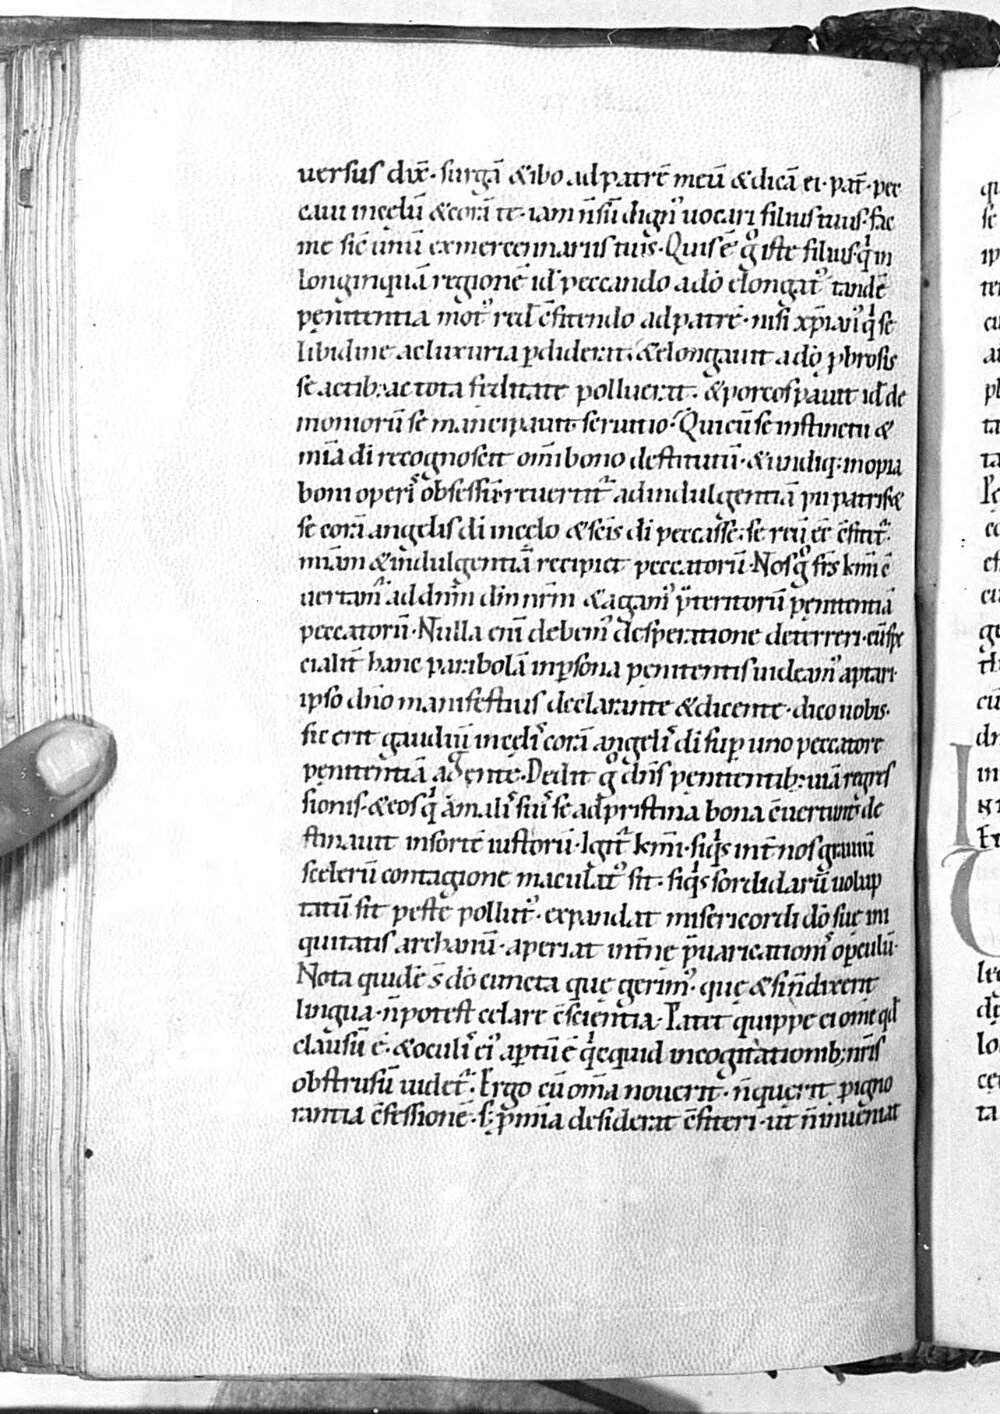 uersus dix̄· surgā &ibo ad patrē meū &dicā ei· pat̄· pec
caui incęlū &corā te· iam n̄ sū dign᷒ uocari filius tuus· fac
me sic̄ unū exmercennariis tuis· Quis ē g̊ iste filius· q̇ in
longinquā regionē id᷎ peccando adō elongat᷒ tandē
pęnitentia mot᷒ red᷎ c̄fitendo ad patrē· nisi xp̄ian᷒ q̇ se
libidine ac luxuria ꝑdiderit· &elongauit a dō ꝓbrosis
se actib; ac tota fęditate polluerit· &porcos pauit id᷎ de
moniorū se mancipauit seruitio· Qui cū se instinctu &
mīa di recognoscit om̄i bono destitutū· &undiq; inopia
boni operi᷒ obsessū· reuertit᷑ ad indulgentiā pii patris· &
se corā angelis di incęlo &sc̄is di peccasse· se reū ee c̄fitit᷑·
mīam &indulgentiā recipiet peccatorū· Nos g̊ frs̄ km̄i c̄
uertam᷒ ad dn̄m dm̄ nr̄m &agam᷒ p̄teritorū pęnitentiā
peccatorū· Nulla eni debem᷒ desperatione deterreri· cū spe
cialit̄ hanc parabolā in ꝑsona pęnitentis uideam᷒ aptari·
ipso dn̄o manifestius declarante &dicente· dico uobis·
sic erit gaudiū incęli᷒ corā angeli᷒ di sup̄ uno peccatore
pęnitentiā agente· Dedit g̊ dn̄s penitentib; uiā regres
sionis· &eos q̇ a malis suis se ad pristina bona c̄uertunt de
stinauit in sortē iustorū· Igit᷑ km̄i· siq̇s int̄ nos graui᷒
scelerū contagione maculat᷒ sit· siq̇s sordidarū uolup
tatū sit peste pollut᷒· expandat misericordi dō suę ini
quitatis archanū· aperiat int̄nę p̄uaricationi᷒ oꝑculū·
Nota quidē s̄ dō cuncta quę gerim᷒· quę &si n̄ dixerit
lingua· n̄ potest celare c̄scientia· Patet quippe ei om̄e qd᷎
clausū ē· &oculi᷒ ei᷒ aptū ē q̇cquid incogitationib; nr̄is
obstrusū uidet᷑· Ergo cū om̄a nouerit· n̄ querit ꝓ igno
rantia c̄fessionē· s; p̄ mīa desiderat c̄fiteri· ut n̄ inueniat